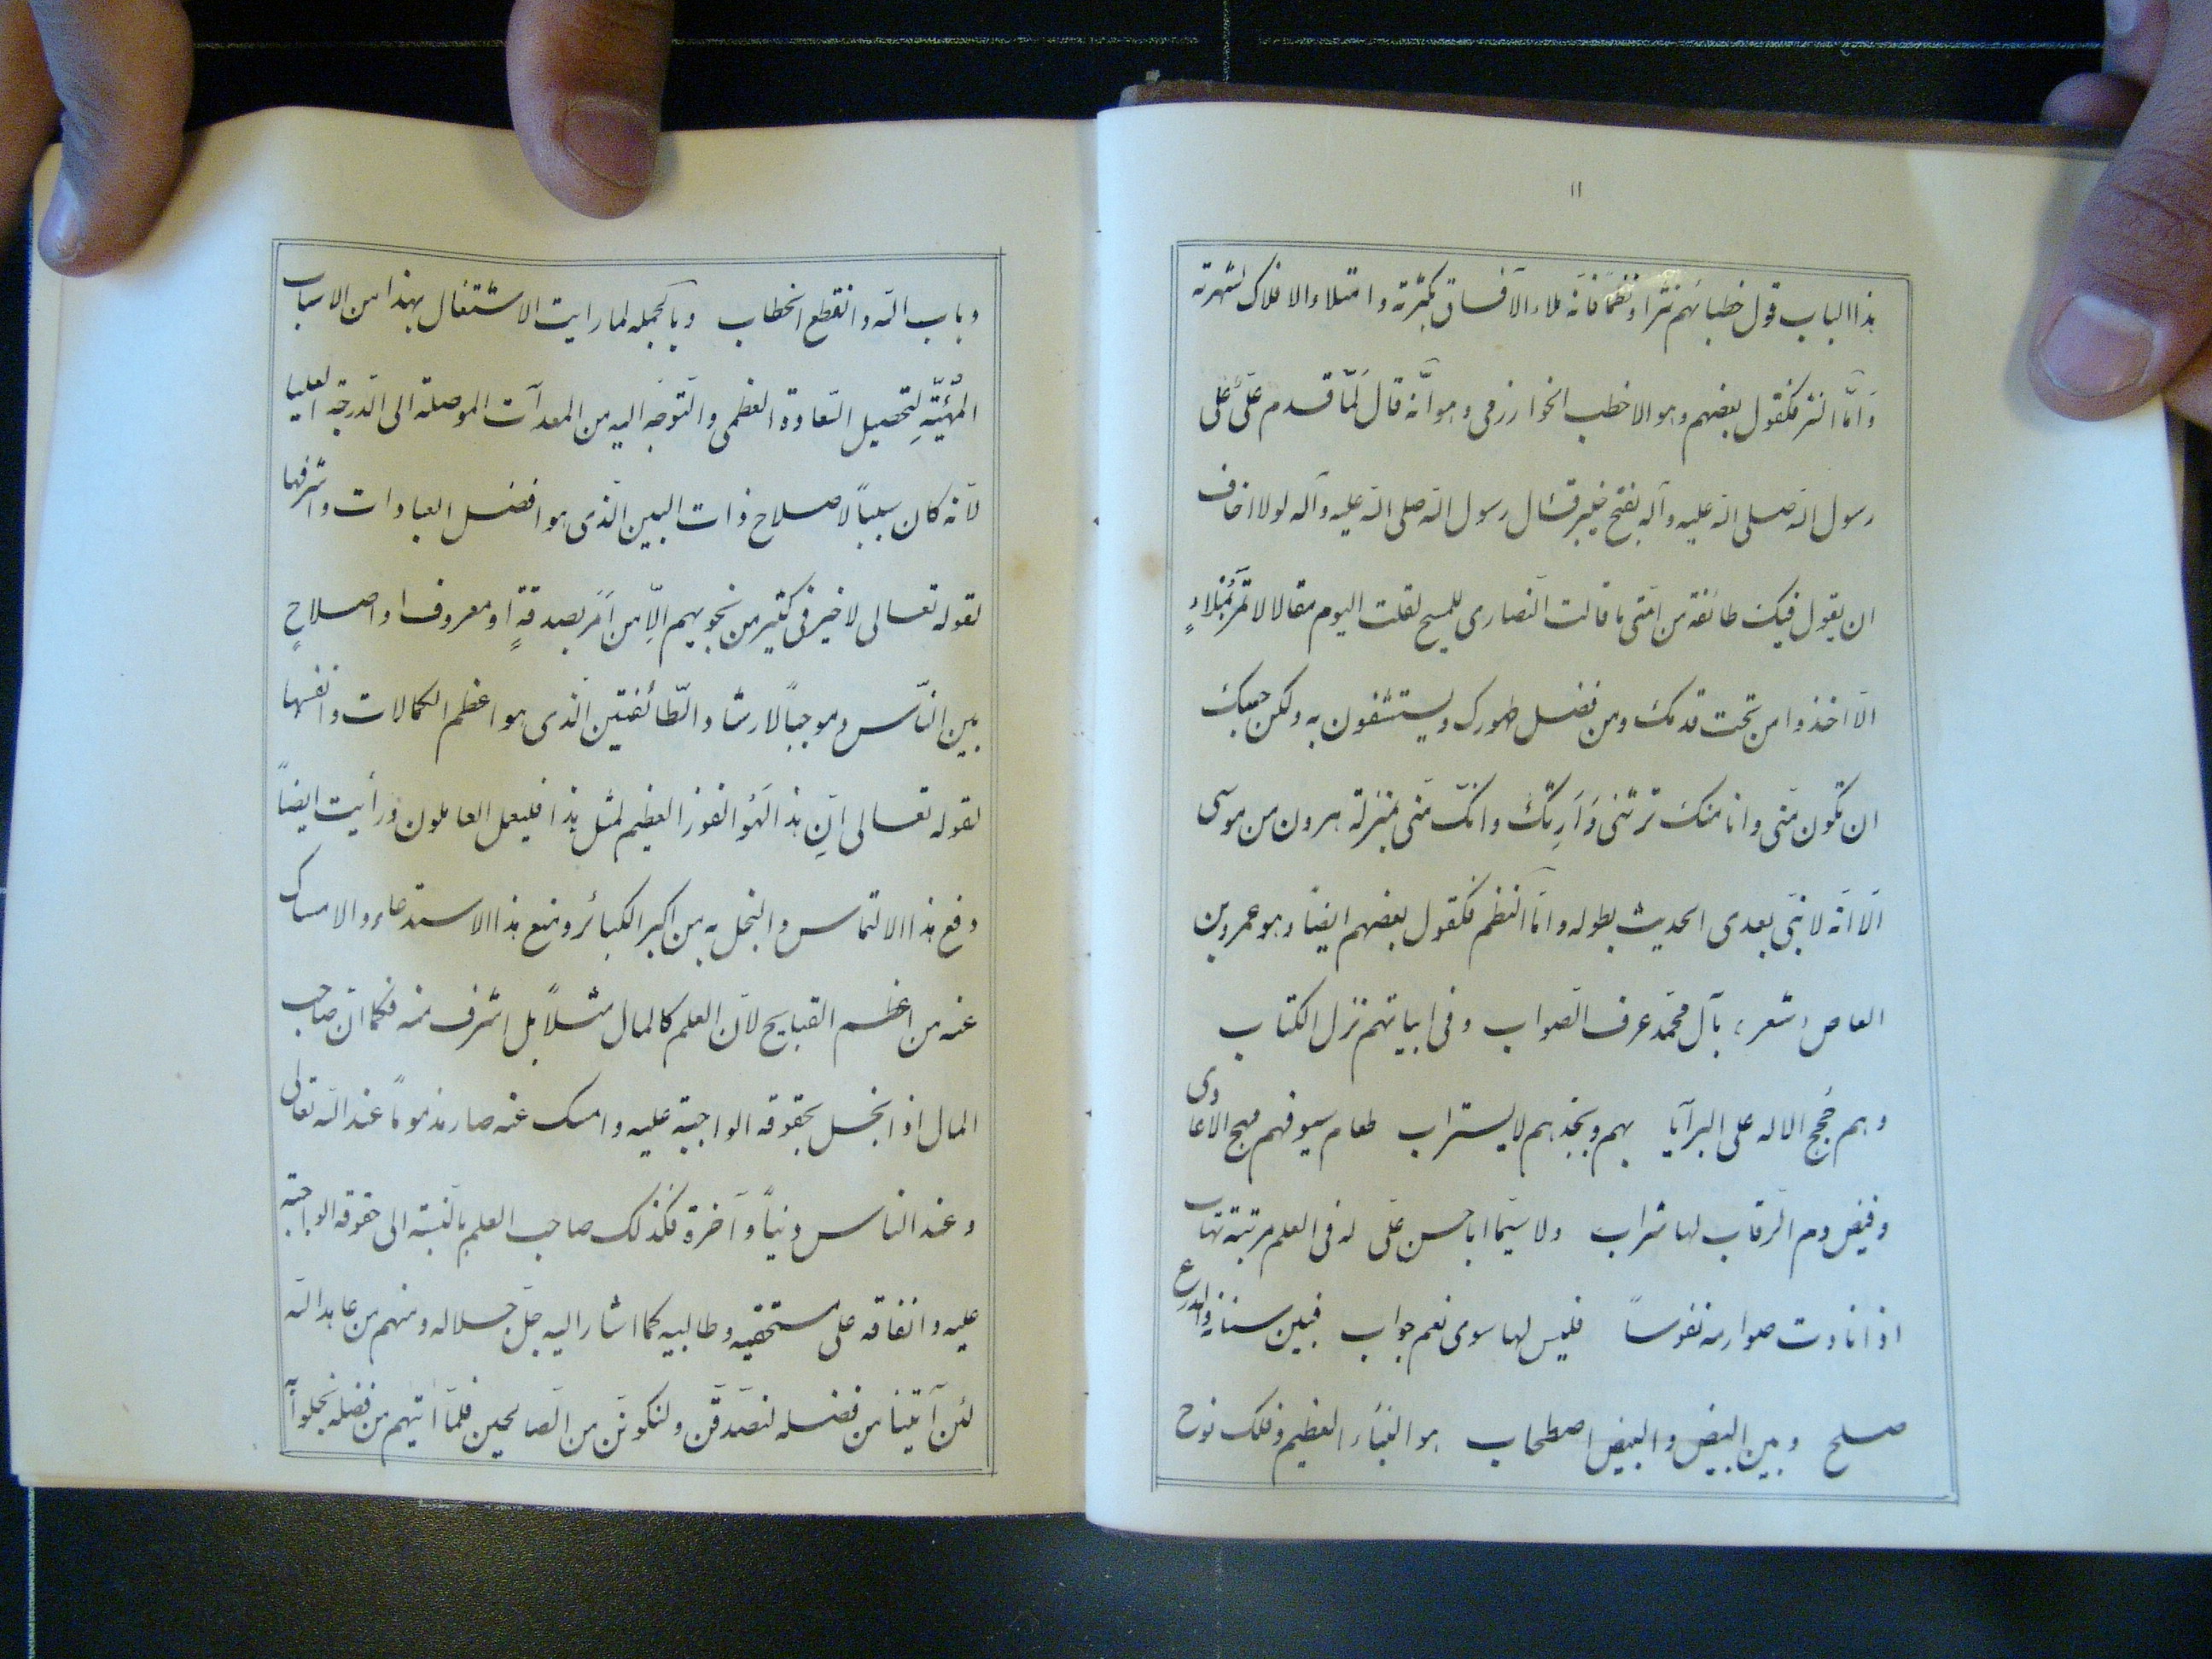 ١١
هذا الباب قول خطبائهم نثرا ونظما فانّه ملاء الآفاق بكثرته وامتلاء الافلاك لشهرته
وَامّا النثر فكقول بعضهم وهو الاخطب الخوارزمى وهو انّه قال لمّا قدم علىّ على
رسول اللّه صلى اللّه عليه وآله بفتح خيبر قال رسول اللّه صلى اللّه عليه وآله لولا اخاف
ان يقول فيك طائفة من امّتى ما قالت النّصارى للمسيح لقلت اليوم مقالا لا تمرّ بملاءٍ
الّا اخذوا من تحت قدمك ومن فضل طهورك ويستشفون به ولكن حسبك
ان تكون منّى وانا منك ترثنى وَاَرِثك وانّك منّى بمنزلة هرون من موسى
الّا انّه لا نبىّ بعدى الحديث بطوله وامّا النّظم فكقول بعضهم ايضا وهو عمرو بن
العاص شعر بآل محمّد عرف الصّواب وفى ابياتهم نزل الكتاب
وهم حُجج الاله على البرآيا بهم وبجدّهم لا يستراب طعام سيوفهم مهج الاعادى
وفيض دم الرّقاب لها شراب ولا سيّما ابا حسن علىّ له فى العلم مرتبة تهاب
اذا نادت صوارمه نفوساً فليس لها سوى نعم جواب فبين سنانه والدرع
صلح وبين البيض والبيض اصطحاب هو النّباء العظيم وفلك نوح
وباب اللّه وانقطع الخطاب وبالجمله لما رايت الاشتغال بهذا من الاسباب
المُهيّئةِ لتحصيل السّعادة العظمى والتّوجّه اليه من المعدآت الموصلة الى الدّرجة العليا
لانّه كان سبباً لاصلاح ذات البين الّذى هو افضل العبادات واشرفها
لقوله تعالى لا خير فى كثير من نجويهم الّا من اَمر بصدقةٍ او معروف او اصلاحٍ
بين النّاس وموجباً لارشاد الطّائفتين الّذى هو اعظم الكمالات وانفسها
لقوله تعالى اِنّ هذا لَهُو الفوز العظيم لمثل هذا فليعمل العاملون ورأيت ايضاً
دفع هذا الالتماس والبخل به من اكبر الكبائر ومنع هذا الاستدعاء والامساك
عنه من اعظم القبايح لانّ العلم كالمال مثلاً بل اشرف منه فكما انّ صاحب
المال اذا بخل بحقوقه الواجبة عليه وامسك عنه صار مذموماً عند اللّه تعالى
وعند الناس دنياً وآخرة فكذلك صاحب العلم بالنّسبة الى حقوقه الواجبة
عليه وانفاقه على مستحقيه وطالبيه كما اشار اليه جلّ جلاله ومنهم من عاهد اللّه
لئن آتينا من فضله لنصّدّقنّ ولنكوننّ من الصّالحين فلمّا اتيهم من فضله بخلوا